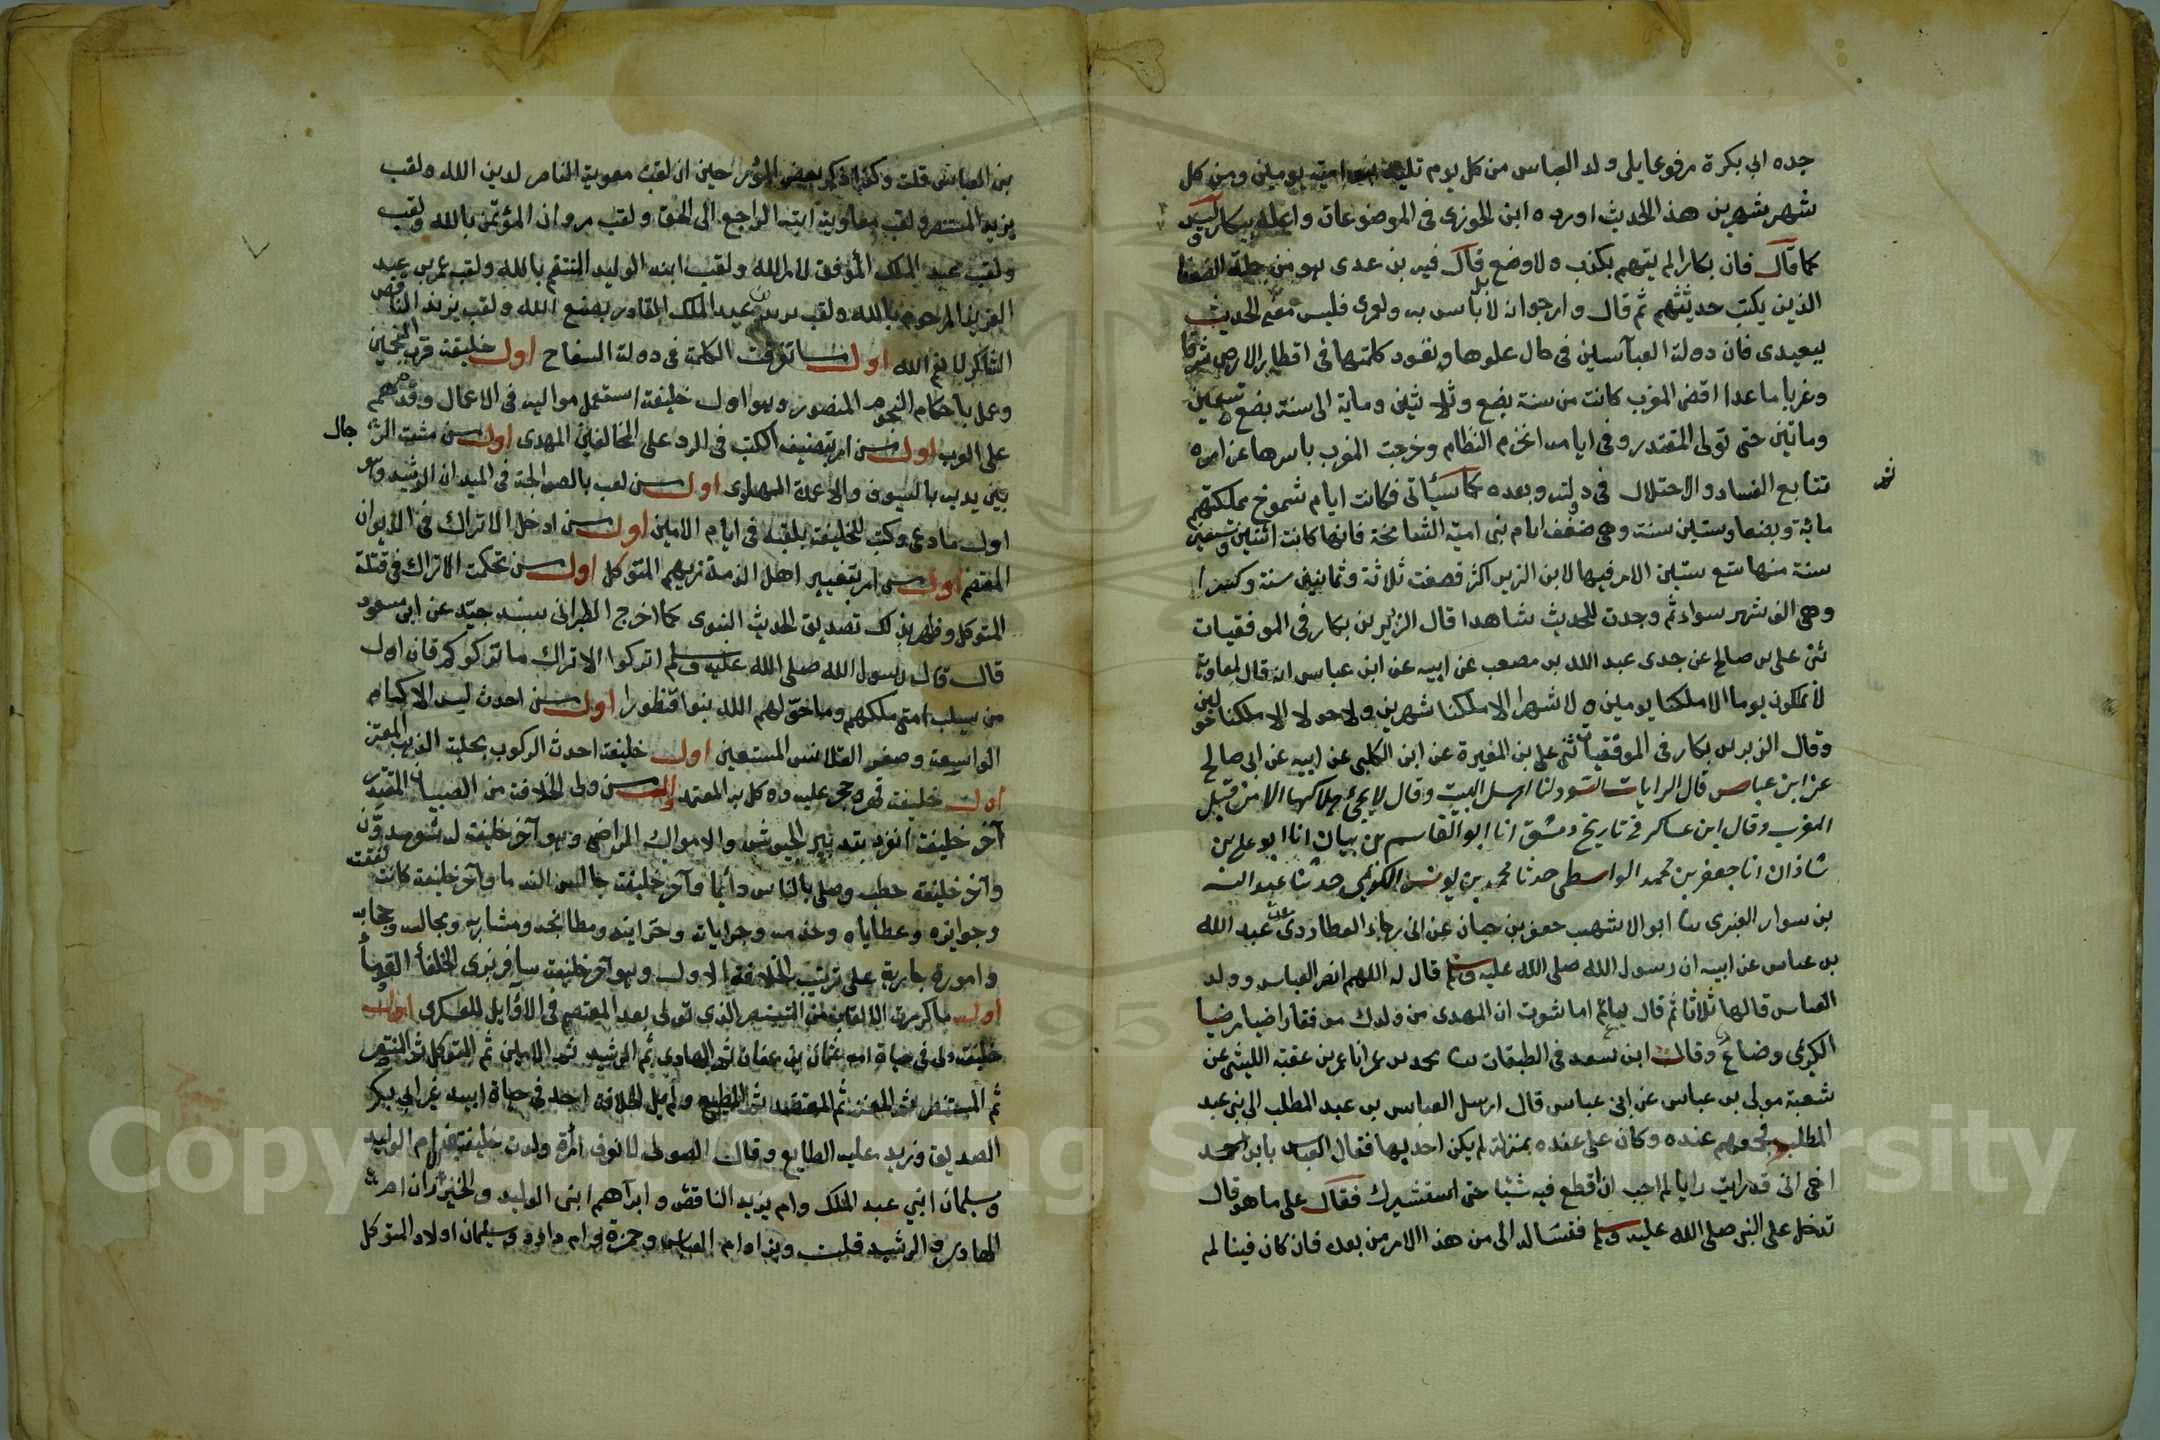 جده ابي بكرة مرفوعا يلى ولد العباس من كل يوم تليه بنو امية يومين ومن كل
شهر شهرين هذا الحديث اورده ابن الجوزى فى الموضوعات واعله ببكار وليس
كما قال فان بكارا لم يتهم بكذب ولا وضع بل قال فيه بن عدى هو من جملة الضعفا
الذين يكتب حديثهم ثم قال وارجوا انه لا باس به ولعمرى فليس معنى الحديث
ببعيدى فان دولة العباسين فى حال علوها ونفود كلمتها فى اقطار الارض شرقا
وغربا ما عدا اقصى المغرب كانت من سنة بضع وثلاثين وماية الى سنة بضع وتسعين
وماتين حتى تولى المقتدر وفى ايامه انخرم النظام وخرجت المغرب باسرها عن امره
تتابع الفساد والاختلال فى دولته وبعده كما سيأتى فكانت ايام شموخ مملكتهم
ماية وبضعا وستين سنة وهى ضعف ايام بنى امية الشامخة فانها كانت اثنين وتسعين
سنة منها تسع سنين الامر فيها لابن الزبير اكثر فصفت ثلاثة وثمانين سنة وكسرا
وهى الف شهر سواء ثم وجدت للحديث شاهدا قال الزبير بن بكار فى الموفقيات
ثنى على بن صالح عن جدى عبد الله بن مصعب عن ابيه عن ابن عباس انه قال لمعاوية
لا تملكون يوما الا ملكنا يومين ولا شهرا الا ملكنا شهرين ولا حولا الا ملكنا حولين
وقال الزبير بن بكار فى الموفقيات ثنى على بن المغيرة عن ابن الكلبى عن ابيه عن ابى صالح
عن ابن عباس قال الرايات السود لنا اهل البيت وقال لا يجئ هلاكها الا من قبل
المغرب وقال ابن عساكر فى تاريخ دمشق انا ابو القاسم بن بيان انا ابو على بن
شاذان انا جعفر بن محمد الواسطى حدثنا محمد بن يونس الكديمى حدثنا عبد الله
بن سوار العنبرى ثنا ابو الاشهب جعفر بن حيان عن ابى رجاء العطاردى عن عبد الله
بن عباس عن ابيه ان رسول الله صلى الله عليه وسلم قال له اللهم انصر العباس وولد
العباس قالها ثلاثا ثم قال يا عم اما شعرت ان المهدى من ولدك موفقا راضيا مرضيا
الكديمى وضاع وقال ابن سعد فى الطبقات ثنا محمد بن عمر انا عمر بن عقبه الليثى عن
شعبة مولى بن عباس عن ابن عباس قال ارسل العباس بن عبد المطلب الى بنى عبد
المطلب فجمعهم عنده وكان على عنده بمنزلة لم يكن احد بها فقال العباس يا ابن
اخى انى قد رايت رايا لم احب ان اقطع فيه شيئا حتى استشيرك فقال على ما هو قال
تدخل على النبى صلى الله عليه وسلم فتساله الى من هذا الامر من بعده فان كان فينا لم
بن العباس قلت وكذا ذكر بعض المؤرخين ان لقب معوية الناصر لدين الله ولقب
يزيد المستنصر ولقب معاوية ابنه الراجع الى الحق ولقب مروان المؤتمن بالله ولقب
ولقب عبد الملك الموفق لامر الله ولقب ابنه الوليد المنتقم بالله ولقب عمر بن عبد
العزيز المرحوم بالله ولقب يزيد بن عبد الملك القادر بصنع الله ولقب يزيد الناقص
الشاكر لانعم الله اول ما تفرقت الكلمة فى دولة السفاح اول خليفة قرب المنجمين
وعمل باحكام النجوم المنصور وهو اول خليفة استعمل مواليه فى الاعمال وقدمهم
على العرب اول من امر بتصنيف الكتب فى الرد على المخالفين المهدى اول من مشت الرجال
بين يديه بالسيوف والاعمدة الهادى اول من لعب بالصوالجة فى الميدان الرشيد وهو
اول ما دعى وكتب للخليفة بلقبه فى ايام الامين اول من ادخل الاتراك فى الديوان
المعتصم اول من امر بتغيير اهل الذمة زيهم المتوكل اول من تحكمت الاتراك فى قتلة
المتوكل وظهر بذلك تصديق الحديث النبوى كما اخرج الطبرانى بسند جيد عن ابن مسعود
قال قال رسول الله صلى الله عليه وسلم اتركوا الاتراك ما تركوكم فان اول
من يسلب امتى ملكهم وما خول لهم الله بنوا قنطورا اول من احدث لبس الاكمام
الواسعة وصغر القلانس المستعين اول خليفة احدث الركوب بحلية الذهب المعتز
اول خليفة قهر وحجر عليه ووكل به المعتمد اول من ولى الخلافة من الصبيان المقتدر
آخر خليفة انفرد بتدبير الجيوش والاموال الراضى وهو آخر خليفة له شعر مدون
وآخر خليفة خطب وصلى بالناس دائما وآخر خليفة جالس الندما وآخر خليفة كانت نفقته
وجوائزه وعطاياه وخدمه وجرايات وخزاينه ومطابخه ومشاربه ومجالسه وحجابه
وامورة جارية على ترتيب الخلافة الاولى وهو آخر خليفة سافر بزى الخلفا القدما
اول ما كررت الالقاب من المستنصر الذى تولى بعد المعتصم فى الاوايل للعسكرى اول
خليفة ولى فى حياة امه عثمان بن عفان ثم الهادى ثم الرشيد ثم الامين ثم المتوكل ثم المنتصر
ثم المستنصر ثم المعتز ثم المعتضد ثم المطيع ولم يل الخلافة احد فى حياة ابيه غير ابى بكر
الصديق وزيد عليه الطايع وقال الصولى لا نعرف امرأة ولدت خليفتين الا ام الوليد
وسليمان ابنى عبد الملك وام يزيد الناقص وابراهيم ابنى الوليد والخيزران ام
الهادى والرشيد قلت ويزاد ام العباس وحمزة وام داود وسليمان اولاد المتوكل
Copyright © King Saud University